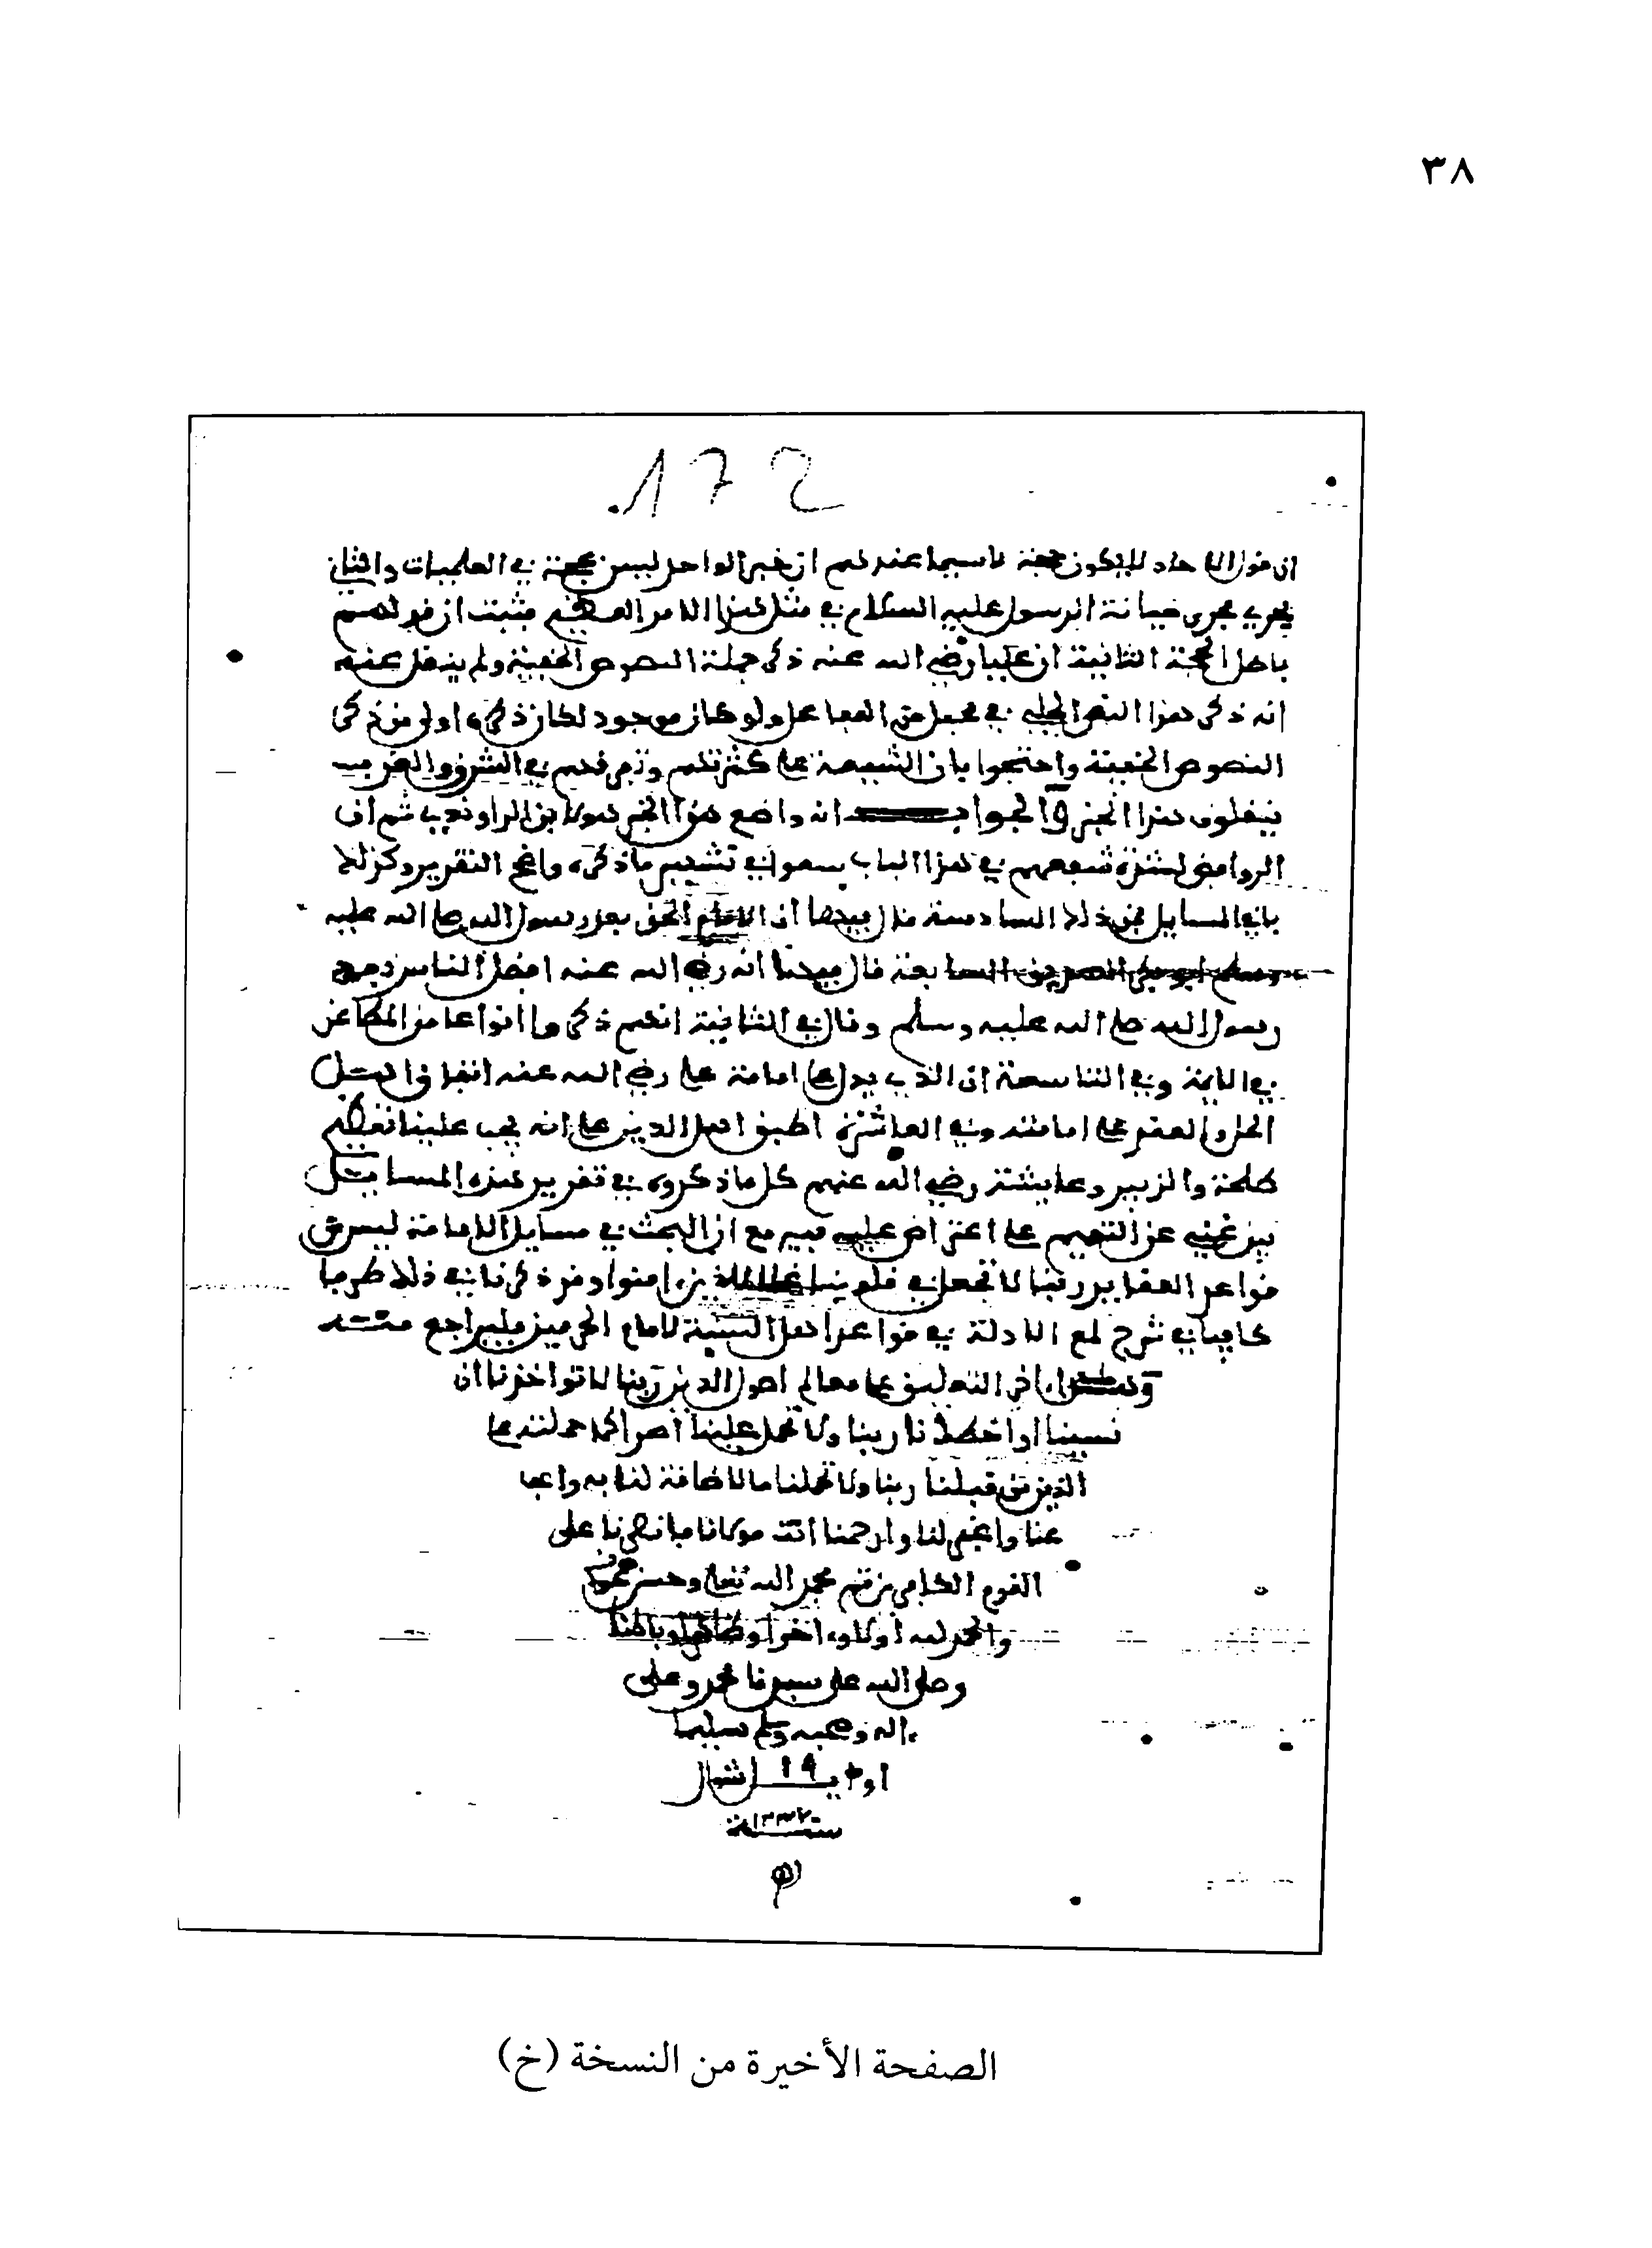 ٣٨
172.
ان قول الاحاد لا يكون حجة لا سيما عندكم ان خبر الواحد ليس بحجة في العلميات والثاني
يجري مجرى خيانة الرسول عليه السلام في مثل هذا الامر العظيم فثبت ان قولهم
باطل الحجة الثانية ان عليا رضي الله عنه ذكر جملة النصوص الخفية ولم ينقل عنه
انه ذكر هذا النص الجلي في محفل من المحافل ولو كان موجود لكان ذكره اولى من ذكر
النصوص الخفية واحتجوا بان الشيعة على كثرتهم وتفرقهم في الشرق والغرب
ينقلون هذا الخبر والجواب ان واضع هذا الخبر هو ابن الراوندي ثم ان
الروافض لشدة شغفهم في هذا الباب سعوا في تشهير ما ذكره واضح التقرير وكذلك
باقي المسايل فمن ذلك السادسة قال فيها ان الامام الحق بعد رسول الله صلى الله عليه
وسلم ابو بكر الصديق السابعة قال فيها انه رضي الله عنه افضل الناس بعد
رسول الله صلى الله عليه وسلم وقال في الثانية انهم ذكروا انواعا من المطاعن
في الايمة وفي التاسعة ان الذي يدل على امامة علي رضي الله عنه اتفاق اهل
الحل والعقد على امامته وفي العاشرة اطبق اهل الدين على انه يجب علينا تعظيم
طلحة والزبير وعايشة رضي الله عنهم كل ما ذكروه في تقرير هذه المسايل
بين غني عن التفهيم على اعتراض عليه فيه مع ان البحث في مسايل الامامة ليس من
قواعد العقايد ربنا لا تجعل في قلوبنا غلا للذين ءامنوا وقد ذكرنا في ذلك طرفا
كافيا في شرح لمع الادلة في قواعد اهل السنة لامام الحرمين فليراجع منه
وهذا ءاخر التعليق على معالم اصول الدين ربنا لا تواخذنا ان
نسينا او اخطأنا ربنا ولا تحمل علينا اصرا كما حملته على
الذين من قبلنا ربنا ولا تحملنا ما لا طاقة لنا به واعف
عنا واغفر لنا وارحمنا انت مولانا فانصرنا على
القوم الكافرين تم بحمد الله تعالى وحسن عونه
والحمد لله أولا وءاخرا وظاهرا وباطنا
وصلى الله على سيدنا محمد وعلى
ءاله وصحبه وسلم تسليما
١٩
سنة ١٣٣٧
الصفحة الأخيرة من النسخة (خ)